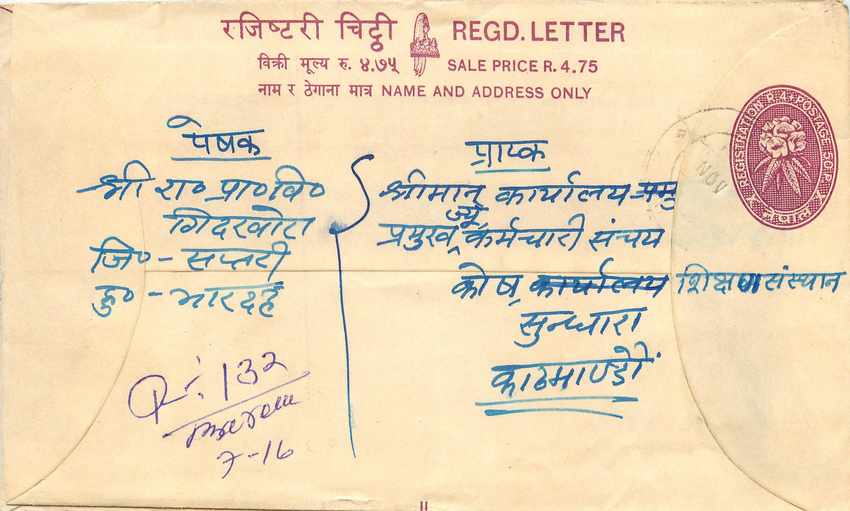 रजिष्टरी चिट्ठी REGD. LETTER
विक्री मूल्य रु. ४.७५ SALE PRICE R. 4.75
नाम र ठेगाना मात्र NAME AND ADDRESS ONLY
REGISTRATION POSTAGE
NOV
प्रेषक
श्री रा० प्रा० वि०
जि० - सप्तरी
हु० - भारदह
प्रापक
श्रीमान् कार्यालय प्रमु
ज्यू
प्रमुख, कर्मचारी संचय
कोष, कार्यालय शिक्षण संस्थान
सुन्धारा
काठमाण्डौं
132
7-16